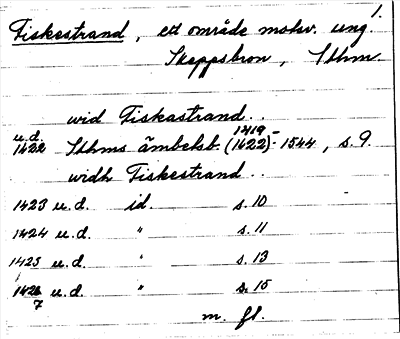 1.
Fiskestrand, ett område motsv. ung.
Skeppsbron, Sthm.
wid Fiskastrand..
u.d. 1419 -
1422 Sthms ämbetsb. (1622) - 1544, s. 9.
widh Fiskestrand..
1423 u.d. id. s. 10
1424 u.d. " s. 11
1425 u.d. " s. 13
1426 u.d. " s. 15
7
m. fl.